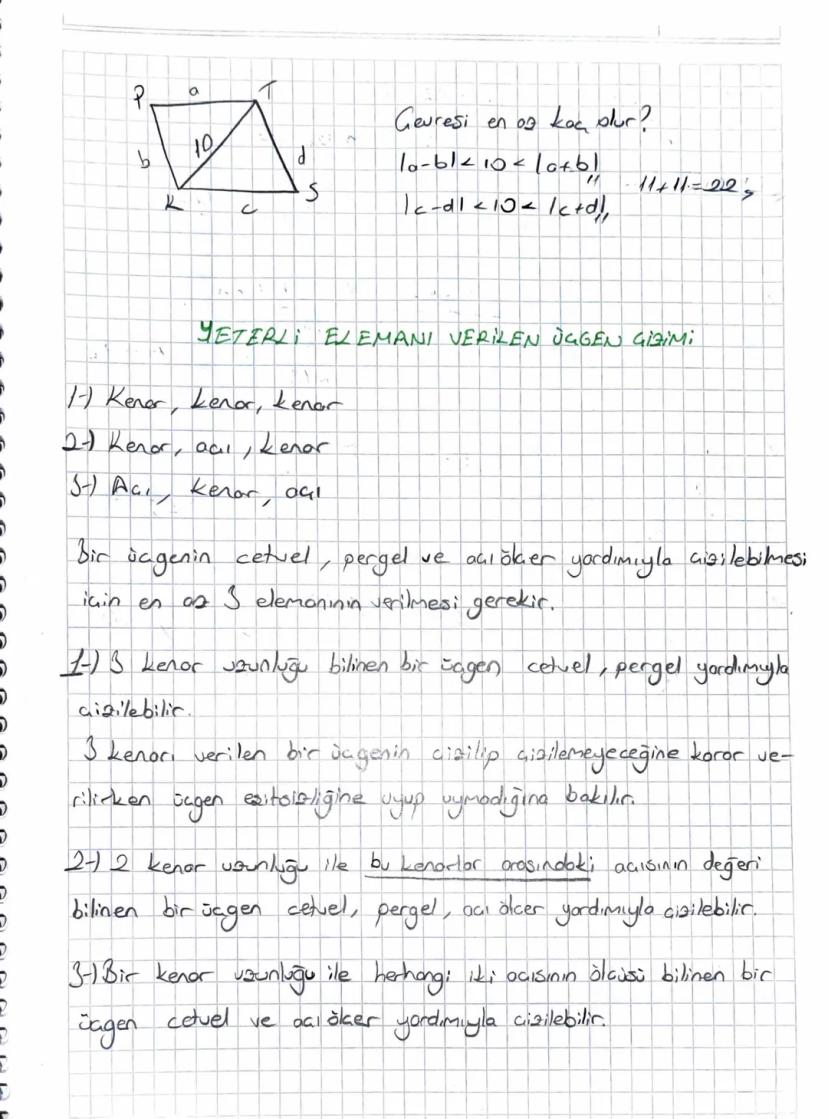 P a T
b 10 d
K c S
Çevresi en az kaç olur?
|a-b| < 10 < |a+b|,,
11+11=22,,
|c-d| < 10 < |c+d|,,
YETERLİ ELEMANI VERİLEN ÜÇGEN ÇİZİMİ
1-) Kenar, kenar, kenar
2-) Kenar, açı, kenar
3-) Açı, kenar, açı
Bir üçgenin cetvel, pergel ve açı ölçer yardımıyla çizilebilmesi
için en az 3 elemanının verilmesi gerekir.
1-) 3 kenar uzunluğu bilinen bir üçgen cetvel, pergel yardımıyla
çizilebilir.
3 kenarı verilen bir üçgenin çizilip çizilemeyeceğine karar ve-
rilirken üçgen eşitsizliğine uyup uymadığına bakılır.
2-) 2 kenar uzunluğu ile bu kenarlar arasındaki açısının değeri
bilinen bir üçgen cetvel, pergel, açı ölçer yardımıyla çizilebilir.
3-) Bir kenar uzunluğu ile herhangi iki açısının ölçüsü bilinen bir
üçgen cetvel ve açı ölçer yardımıyla çizilebilir.